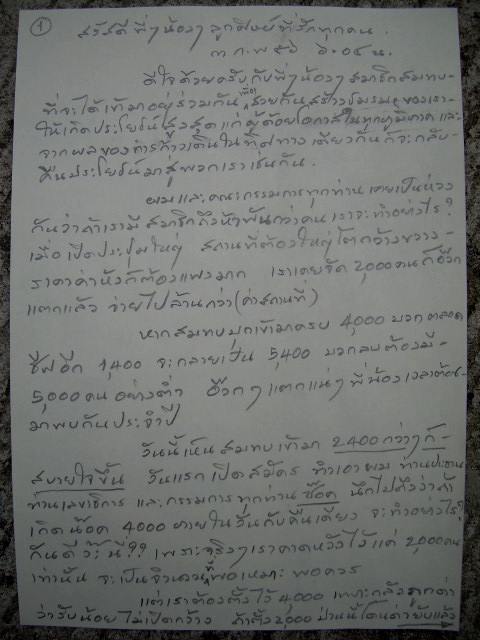 ①
สวัสดี พี่ๆ น้องๆ ลูกศิษย์ที่รักทุกคน
๓ ก.พ ๕๖ ๖.๐๔ น.
ดีใจด้วยครับ กับพี่ๆ น้องๆ สมาชิกสมทบ-
ที่จะได้เข้ามาอยู่ร่วมกัน เพื่อช่วยกันสร้างชมรมของเรา
ให้เกิดประโยชน์สูงสุดแก่ผู้ด้อยโอกาสในทุกภูมิภาค และ
จากผลของการก้าวเดินในทิศทางเดียวกันก็จะกลับ-
คืนประโยชน์มาสู่พวกเราเช่นกัน.
ผมและคณะกรรมการทุกท่านเคยเป็นห่วง
กันว่าถ้าเรามีสมาชิกถึงห้าพันกว่าคนเราจะทำอย่างไร?
เมื่อเปิดประชุมใหญ่ สถานที่ต้องใหญ่โตกว้างขวาง-
ราคาค่าหัวก็ต้องแพงมาก เราเคยจัด 2,000 คนก็อ๊วก
แตกแล้ว จ่ายไปล้านกว่า (ค่าสถานที่)
หากสมทบบุกเข้ามาครบ 4,000 บวกตลอด
ชีพอีก 1,400 จะกลายเป็น 5,400 บวกลบต้องมี-
5,000 คน อย่างต่ำ อ๊วกๆ แตกแน่ๆ พี่น้อง เวลาต้อง-
มาพบกันประจำปี
วันนี้เห็นสมทบเข้ามา 2,400 กว่าๆ ก็-
สบายใจขึ้น วันแรกเปิดสมัคร ทำเอาผม ท่านประธาน
ท่านเลขาธิการ และกรรมการทุกท่าน ช๊อค นึกไปถึงว่าถ้า
เกิดน๊อค 4000 ภายในวันกับคืนเดียว จะทำอย่างไร?
กันดีว๊ะนี่?? เพราะจริงๆ เราคาดหวังไว้แค่ 2,000 คน
เท่านั้น จะเป็นจำนวนที่พอเหมาะ พอควร
แต่เราต้องตั้งไว้ 4,000 เพราะกลัวถูกด่า
ว่ารับน้อย ไม่เปิดกว้าง ถ้าตั้ง 2,000 ป่านนี้โดนด่ายับแล้ว